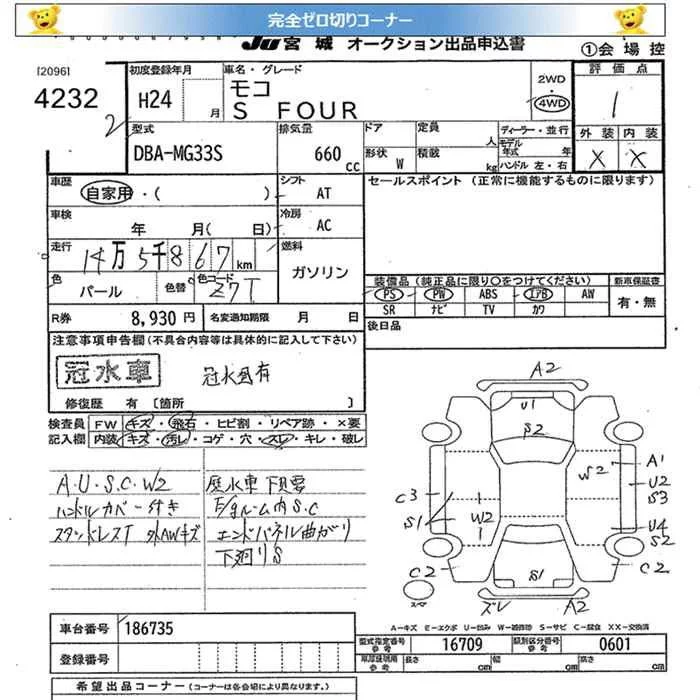 完全ゼロ切りコーナー
JU 宮城 オークション出品申込書
①会場控
[2096]
4232
2
初度登録年月
H24 月
車名・グレード
モコ
S FOUR
2WD
・
4WD
評価点
1
外装 内装
X X
型式
DBA-MG33S
排気量
660 cc
ドア
形状 W
定員 人
積載 kg
ディーラー・並行
モデル年式 年
ハンドル 左・右
車歴
自家用・( )
シフト
AT
セールスポイント (正常に機能するものに限ります)
車検
年 月( 日)
冷房
AC
走行
14万5千867km
燃料
ガソリン
色
パール
色替
色コード
Z7T
装備品 (純正品に限り○をつけてください)
PS PW ABS エアB AW
SR ナビ TV カワ
新車保証書
有・無
R券
8,930 円
名変通知期限 月 日
後日品
注意事項申告欄 (不具合内容等は具体的に記入して下さい)
冠水車
修復歴 有 [箇所 ]
検査員記入欄
FW キズ・飛石・ヒビ割・リペア跡・×要
内装 キズ・汚レ・コゲ・穴・スレ・キレ・破レ
A・U・S・C・W2
ハンドルカバー付き
スタッドレスT 外AWキズ
歴水車 下見要
E/gルーム内S.C
エンドパネル曲がり
下廻りS
A2
U1
S2
W2
A1
U2
S3
C3
S1
W2
U4
S2
C2
S1
C2
スペア
ズレ
A2
A-キズ E-エクボ U-凹み W-補修跡 S-サビ C-腐食 XX-交換済
車台番号
186735
登録番号
型式指定番号
参考
16709
類別区分番号
参考
0601
参考
長さ cm
幅 cm
高さ cm
希望出品コーナー (コーナーは各会場により異なります。)